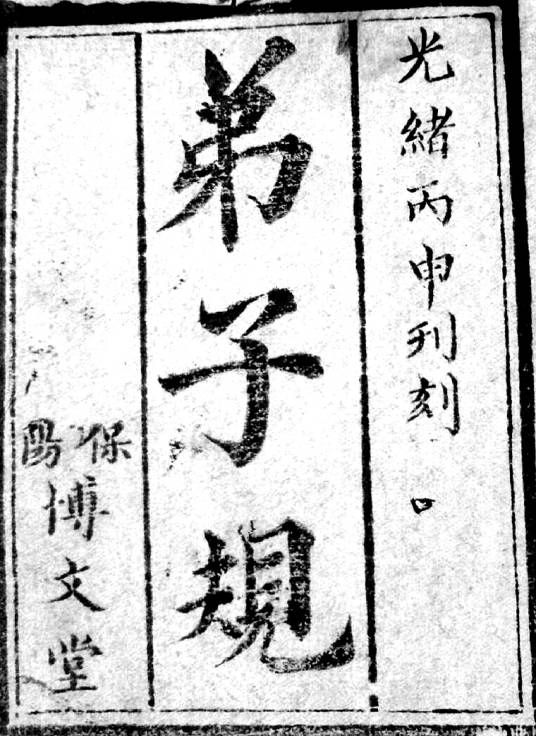 光緒丙申刊刻
弟子規
保陽
博文堂